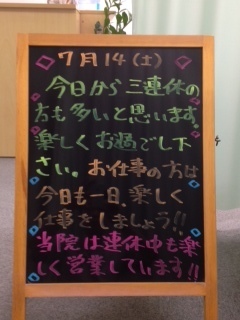 7月14(土)
今日から三連休の
方も多いと思います。
楽しくお過ごし下
さい。お仕事の方は
今日も一日、楽しく
仕事をしましょう!!
当院は連休中も楽
しく営業しています!!